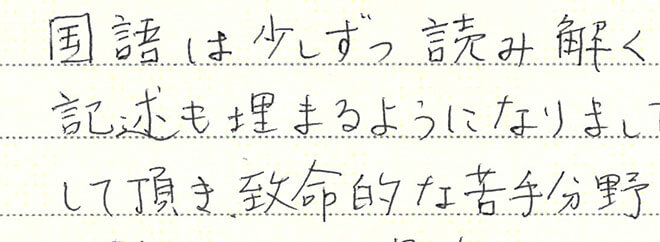 国語は少しずつ読み解く
記述も埋まるようになりまして
して頂き、致命的な苦手分野